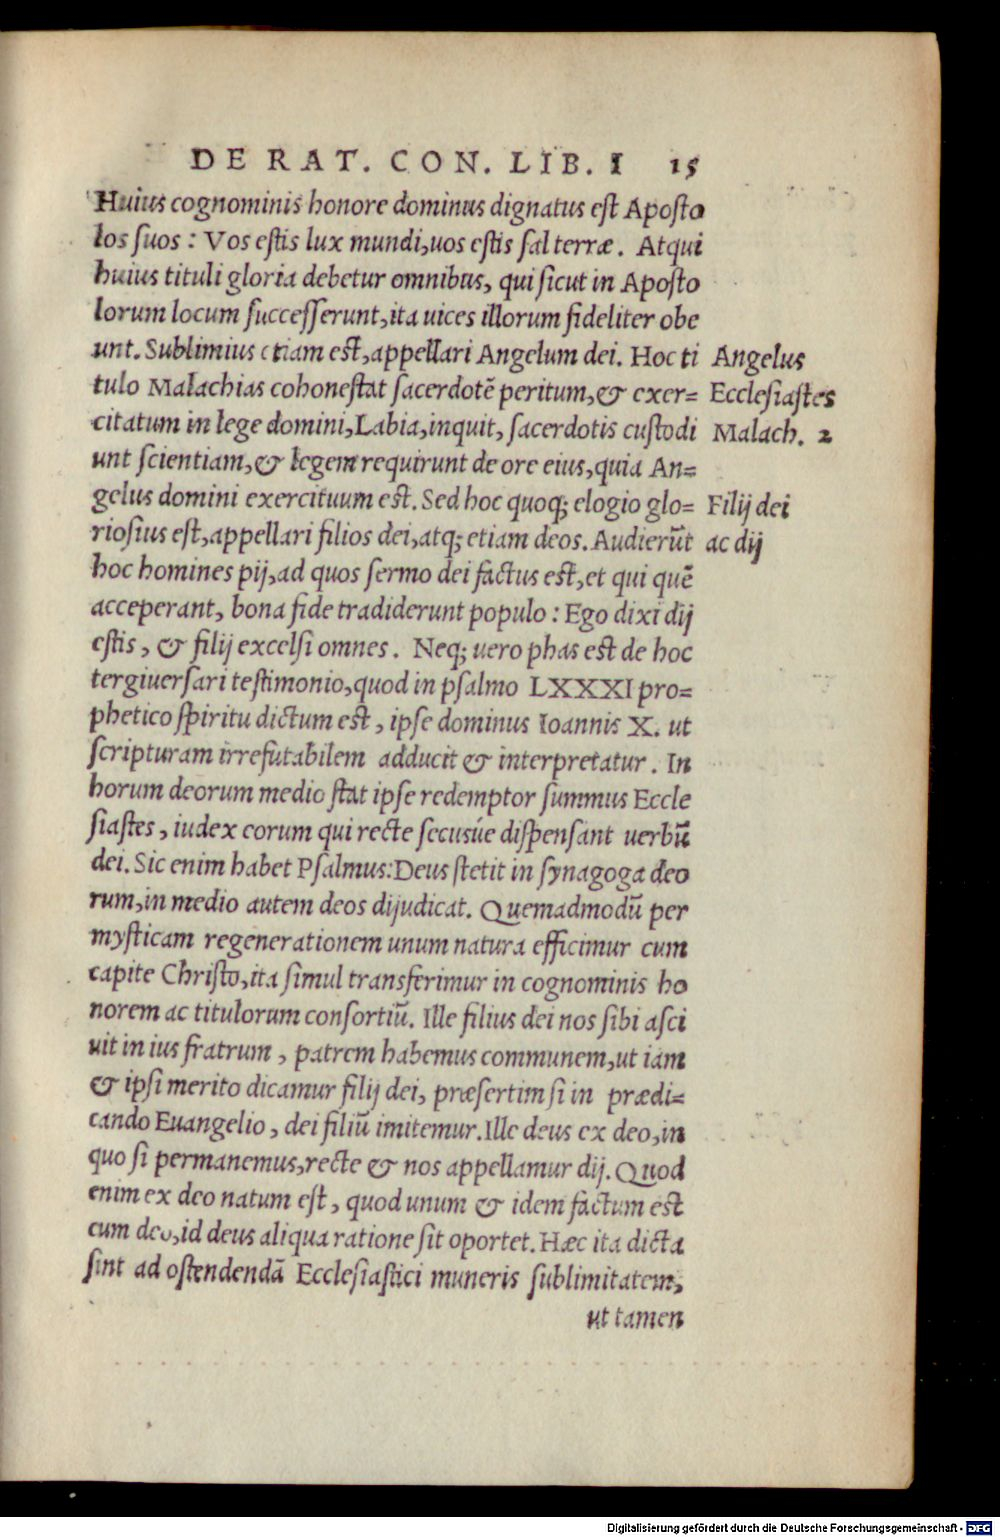 DE RAT. CON. LIB. I 15
Huius cognominis honore dominus dignatus est Aposto
los suos : Vos estis lux mundi, uos estis sal terræ. Atqui
huius tituli gloria debetur omnibus, qui sicut in Aposto
lorum locum successerunt, ita uices illorum fideliter obe
unt. Sublimius etiam est, appellari Angelum dei. Hoc ti
Angelus
tulo Malachias cohonestat sacerdotẽ peritum, & exer=
Ecclesiastes
citatum in lege domini, Labia, inquit, sacerdotis custodi
Malach. 2
unt scientiam, & legem requirunt de ore eius, quia An=
gelus domini exercituum est. Sed hoc quoq; elogio glo=
Filij dei
riosius est, appellari filios dei, atq; etiam deos. Audierũt
ac dij
hoc homines pij, ad quos sermo dei factus est, et qui quẽ
acceperant, bona fide tradiderunt populo : Ego dixi dij
estis, & filij excelsi omnes. Neq; uero phas est de hoc
tergiuersari testimonio, quod in psalmo LXXXI pro=
phetico spiritu dictum est, ipse dominus Ioannis X. ut
scripturam irrefutabilem adducit & interpretatur. In
horum deorum medio stat ipse redemptor summus Eccle
siastes, iudex eorum qui recte secusúe dispensant uerbũ
dei. Sic enim habet Psalmus: Deus stetit in synagoga deo
rum, in medio autem deos dijudicat. Quemadmodũ per
mysticam regenerationem unum natura efficimur cum
capite Christo, ita simul transferimur in cognominis ho
norem ac titulorum consortiũ. Ille filius dei nos sibi asci
uit in ius fratrum, patrem habemus communem, ut iam
& ipsi merito dicamur filij dei, præsertim si in prædi=
cando Euangelio, dei filiũ imitemur. Ille deus ex deo, in
quo si permanemus, recte & nos appellamur dij. Quod
enim ex deo natum est, quod unum & idem factum est
cum deo, id deus aliqua ratione sit oportet. Hæc ita dicta
sint ad ostendendã Ecclesiastici muneris sublimitatem,
ut tamen
Digitalisierung gefördert durch die Deutsche Forschungsgemeinschaft - DFG